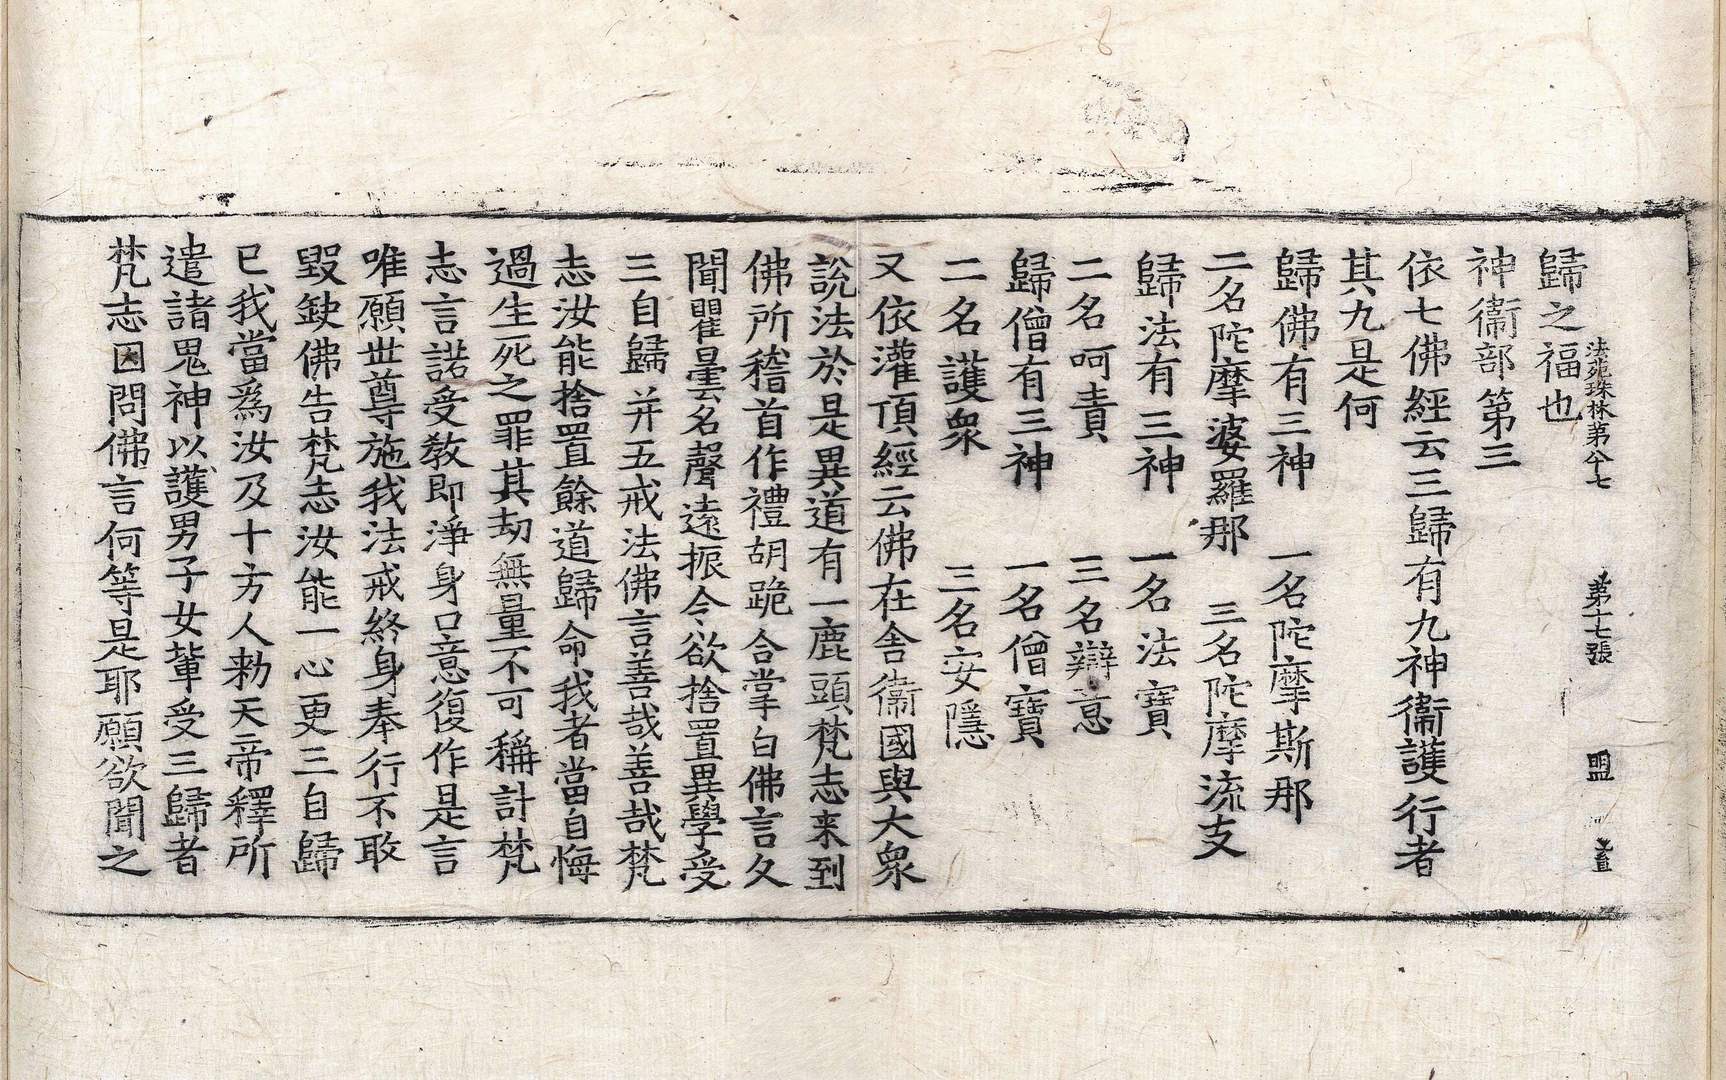 法苑珠林第八十七　第十七張　盟
歸之福也
神衞部第三
依七佛經云三歸有九神衞護行者
其九是何
歸佛有三神　一名陀摩斯那
二名陀摩婆羅那　三名陀摩流支
歸法有三神　一名法寶
二名呵責　三名辯意
歸僧有三神　一名僧寶
二名護衆　三名安隱
又依灌頂經云佛在舍衞國與大衆
說法於是異道有一鹿頭梵志来到
佛所稽首作禮胡跪合掌白佛言久
聞瞿曇名聲遠振今欲捨置異學受
三自歸并五戒法佛言善哉善哉梵
志汝能捨置餘道歸命我者當自悔
過生死之罪其劫無量不可稱計梵
志言諾受教即淨身口意復作是言
唯願世尊施我法戒終身奉行不敢
毀缺佛告梵志汝能一心更三自歸
已我當爲汝及十方人勑天帝釋所
遣諸鬼神以護男子女軰受三歸者
梵志因問佛言何等是耶願欲聞之